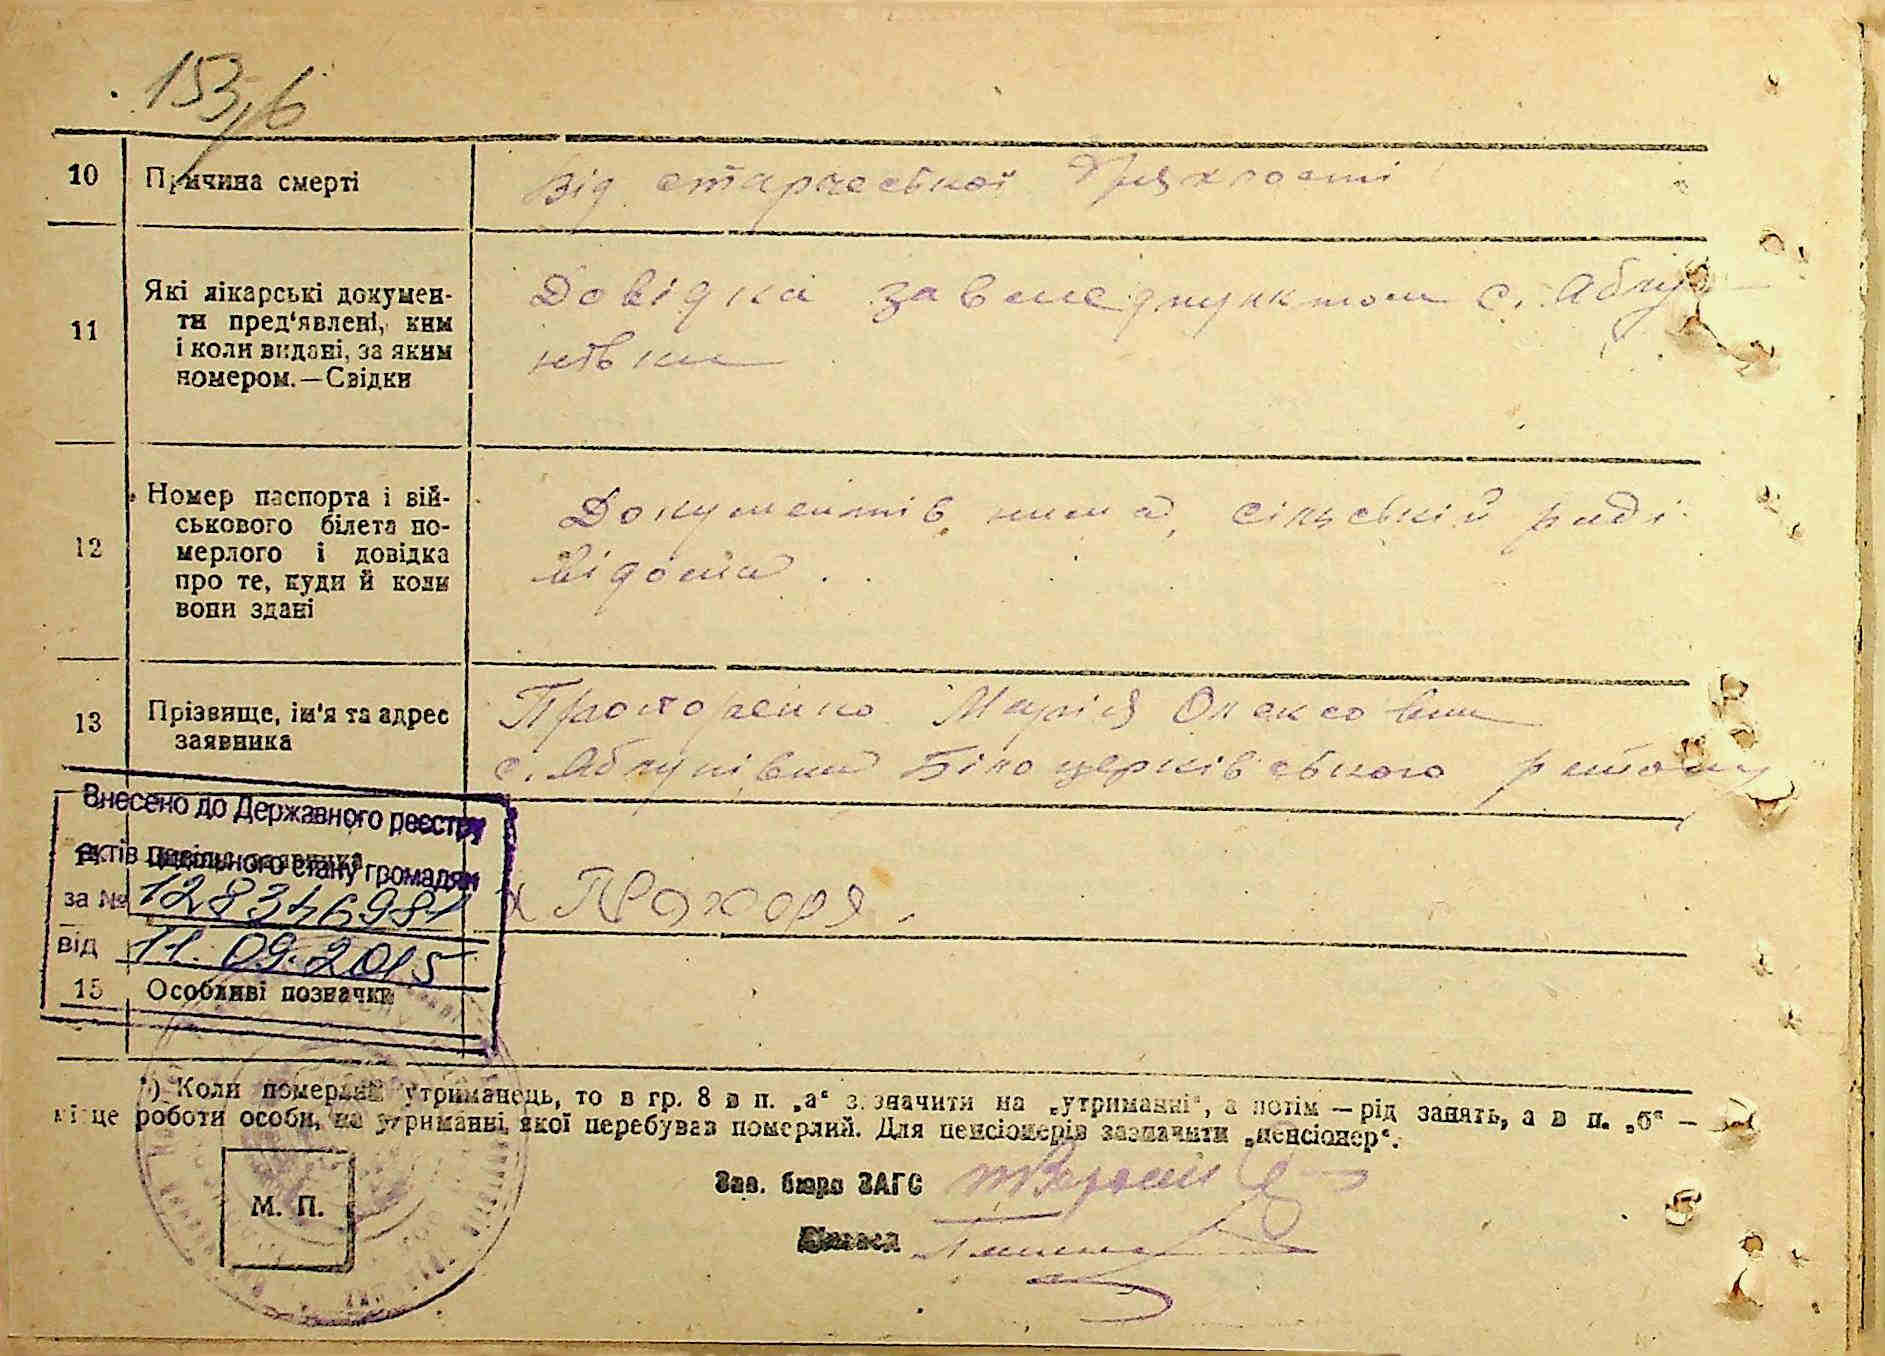 153,6
10 Причина смерті
Від старческої дряхлості
11 Які лікарські докумен-
ти пред'явлені, ким
і коли видані, за яким
номером.—Свідки
Довідка завмедпунктом с. Яблу-
нівки
12 Номер паспорта і вій-
ськового білета по-
мерлого і довідка
про те, куди й коли
вони здані
Документів нима, сільській раді
відома.
13 Прізвище, ім'я та адрес
заявника
Марія Олексовна
с. Яблунівка Білоцерківського району
Внесено до Державного реєстру
актів цивільного стану громадян
за № 128346981
від 11.09.2015
15 Особливі позначки
*) Коли померлий утриманець, то в гр. 8 в п. „а“ зазначити на „утриманні“, а потім — рід занять, а в п. „б“ —
місце роботи особи, на утриманні якої перебував померлий. Для пенсіонерів зазначити „пенсіонер“.
М. П.
Зав. бюро ЗАГС